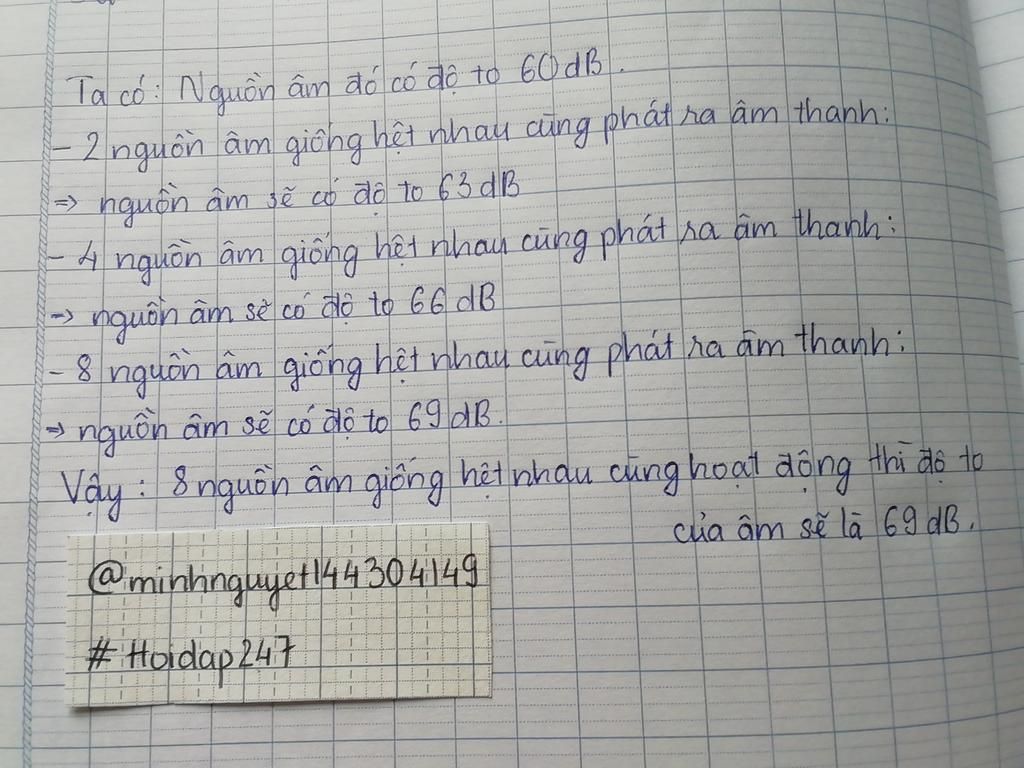 Ta có: Nguồn âm đó có độ to 60 dB.
- 2 nguồn âm giống hệt nhau cùng phát ra âm thanh:
=> nguồn âm sẽ có độ to 63 dB
- 4 nguồn âm giống hệt nhau cùng phát ra âm thanh:
=> nguồn âm sẽ có độ to 66 dB
- 8 nguồn âm giống hệt nhau cùng phát ra âm thanh:
=> nguồn âm sẽ có độ to 69 dB.
Vậy: 8 nguồn âm giống hệt nhau cùng hoạt động thì độ to
của âm sẽ là 69 dB.
@minhnguyet144304149
#Hoidap247